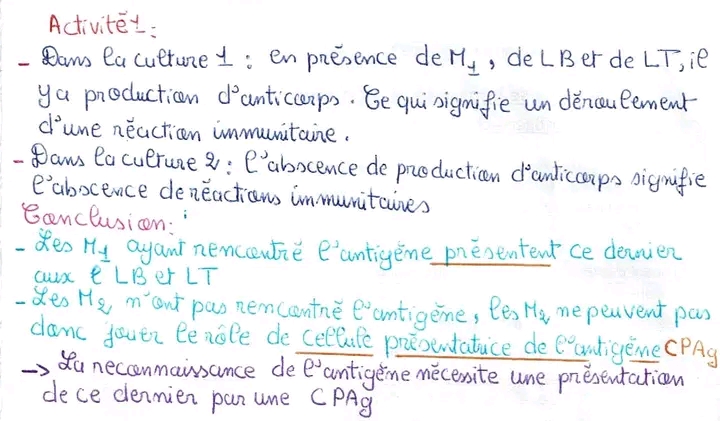 Activité 1 :
- Dans la culture 1 : en présence de M1, de LB et de LT, il
y a production d'anticorps. Ce qui signifie un déroulement
d'une réaction immunitaire.
- Dans la culture 2 : l'abscence de production d'anticorps signifie
l'abscence de réactions immunitaires
Conclusion :
- Les M1 ayant rencontré l'antigène présentent ce dernier
aux l LB et LT
- Les M2 n'ont pas rencontré l'antigène, les M2 ne peuvent pas
donc jouer le rôle de cellule présentatrice de l'antigène CPAg
-> La reconnaissance de l'antigène nécessite une présentation
de ce dernier par une CPAg